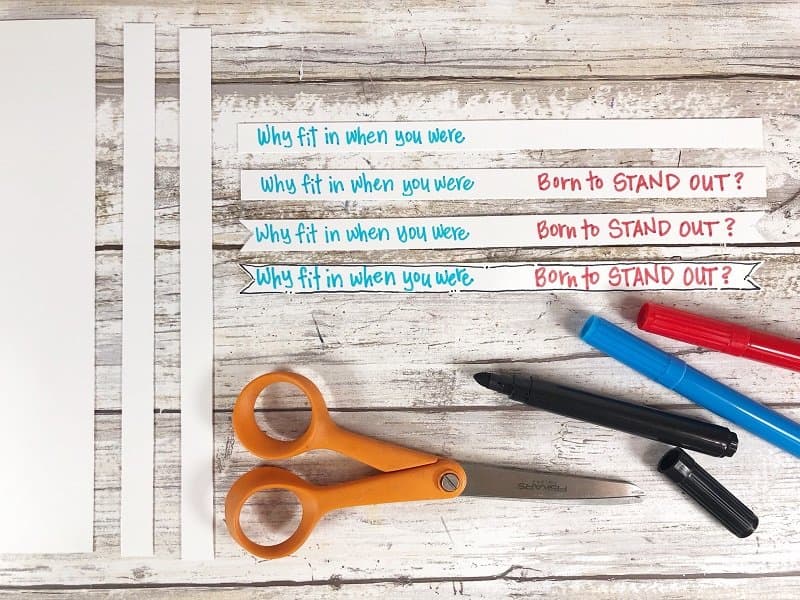 Why fit in when you were
Why fit in when you were Born to STAND OUT?
Why fit in when you were Born to STAND OUT?
Why fit in when you were Born to STAND OUT?
FISKARS